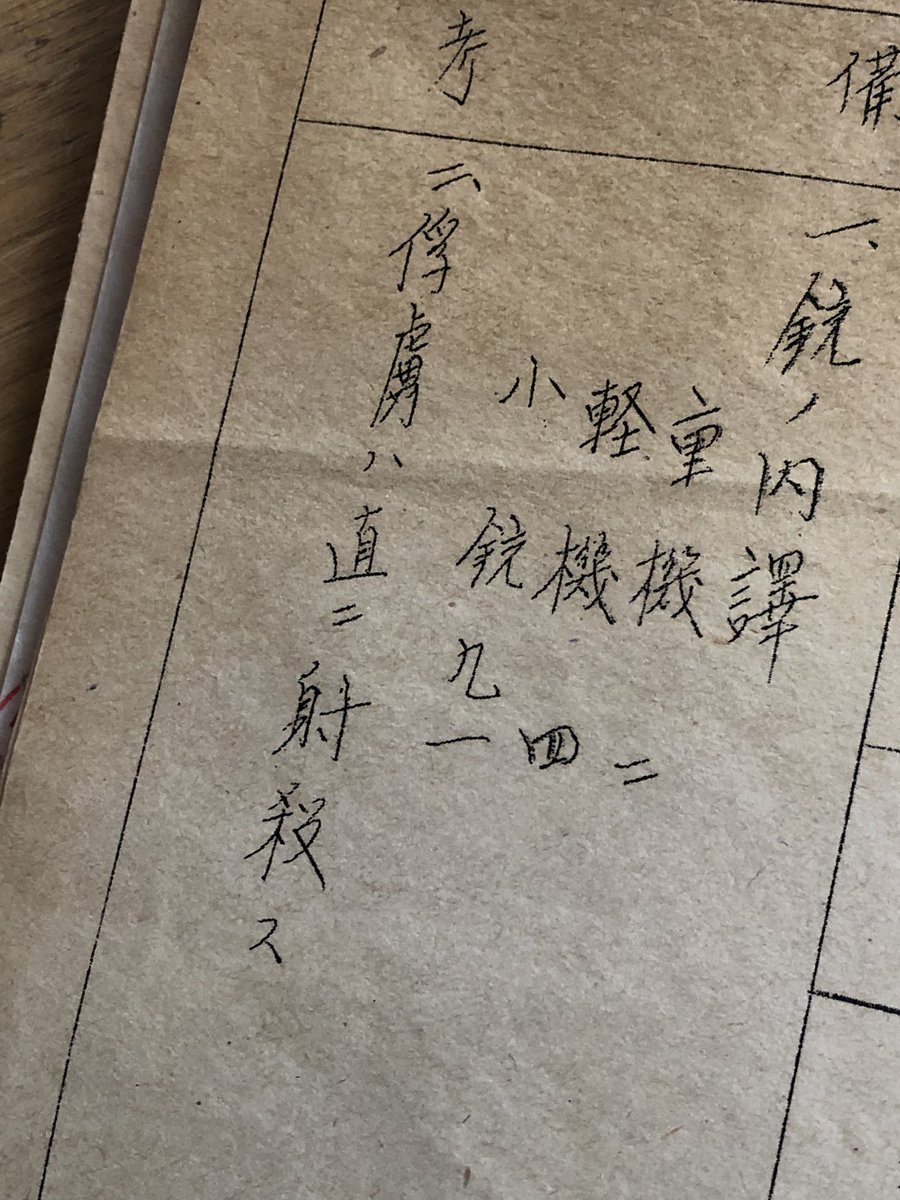 備考
一、銃ノ内譯
重機 二
軽機 四
小銃 九一
二、俘虜ハ直ニ射殺ス